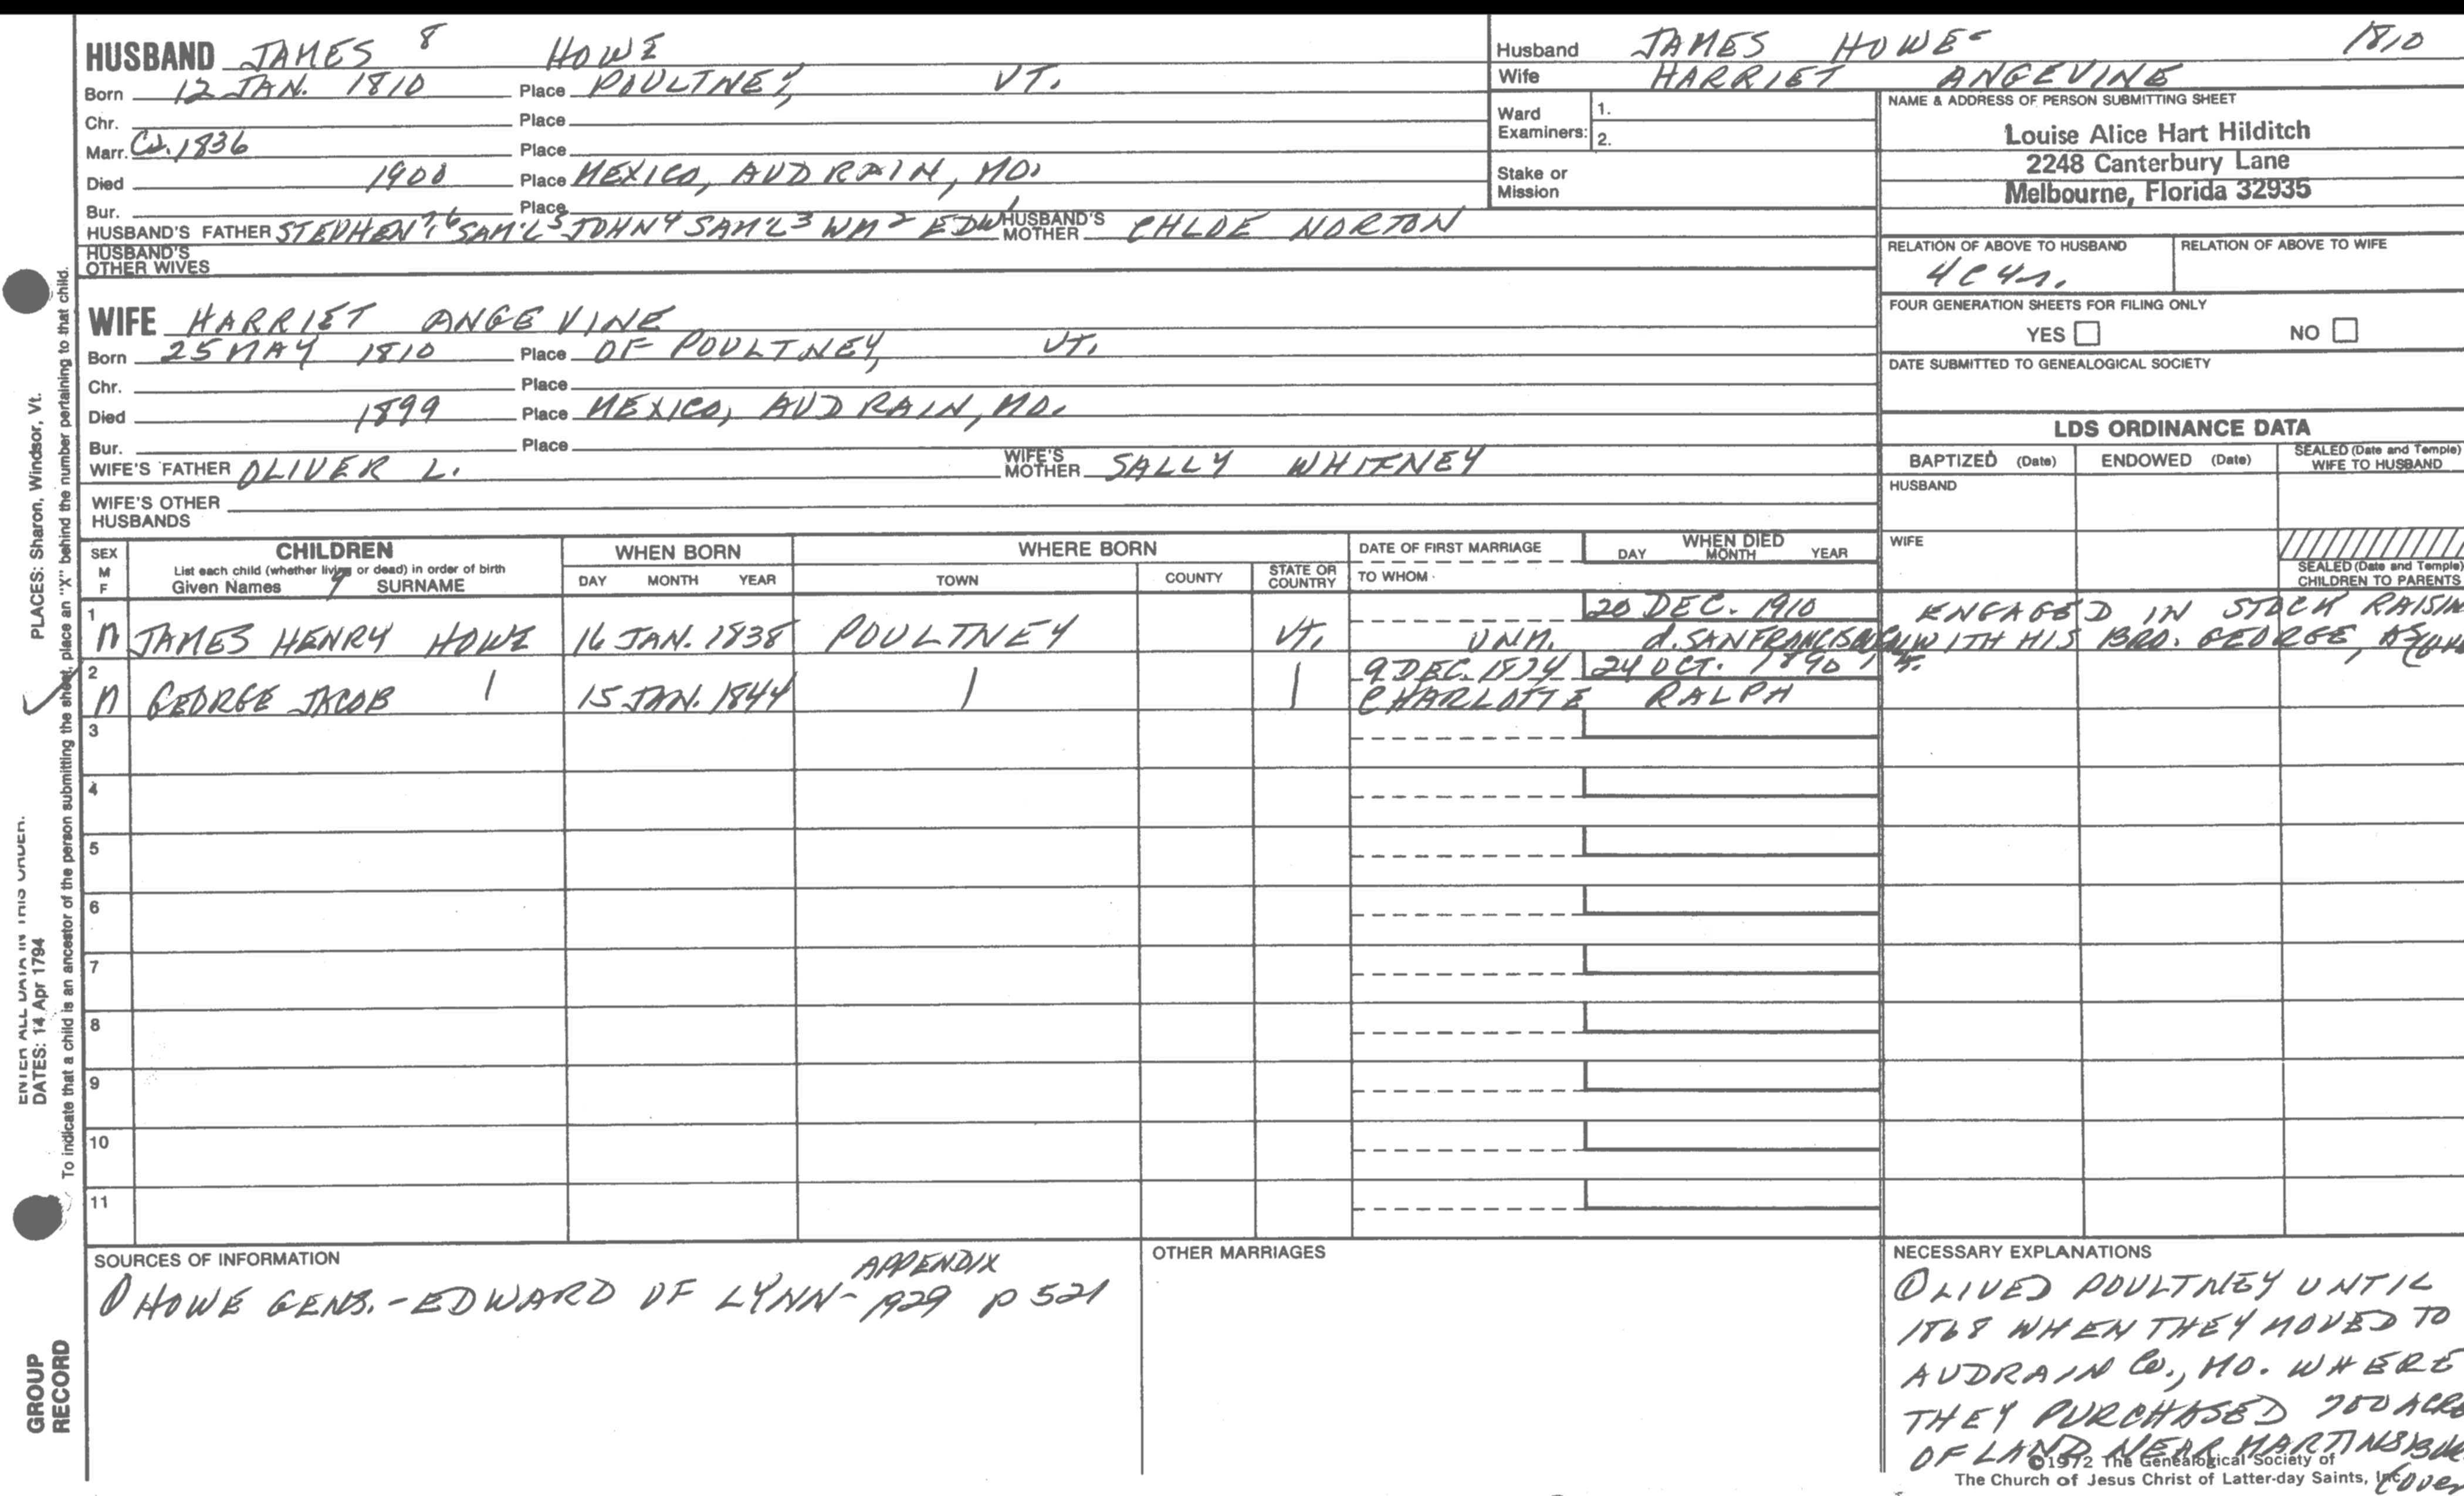 HUSBAND JAMES 8 HOWE
Born 12 JAN. 1810 Place POULTNEY, VT.
Chr. Place
Marr. Ca. 1836 Place
Died 1900 Place MEXICO, AUDRAIN, MO.
Bur. Place
HUSBAND'S FATHER STEPHEN 7, 6 SAM'L 5 JOHN 4 SAM'L 3 WM 2 EDW 1 HUSBAND'S MOTHER CHLOE NORTON
HUSBAND'S OTHER WIVES
WIFE HARRIET ANGEVINE
Born 25 MAY 1810 Place OF POULTNEY, VT.
Chr. Place
Died 1899 Place MEXICO, AUDRAIN, MO.
Bur. Place
WIFE'S FATHER OLIVER L. WIFE'S MOTHER SALLY WHITNEY
WIFE'S OTHER HUSBANDS
Husband JAMES HOWE 1810
Wife HARRIET ANGEVINE
Ward Examiners: 1.
2.
Stake or Mission
NAME & ADDRESS OF PERSON SUBMITTING SHEET
Louise Alice Hart Hilditch
2248 Canterbury Lane
Melbourne, Florida 32935
RELATION OF ABOVE TO HUSBAND RELATION OF ABOVE TO WIFE
FOUR GENERATION SHEETS FOR FILING ONLY
YES NO
DATE SUBMITTED TO GENEALOGICAL SOCIETY
LDS ORDINANCE DATA
BAPTIZED (Date) ENDOWED (Date) SEALED (Date and Temple) WIFE TO HUSBAND
HUSBAND
WIFE
SEALED (Date and Temple) CHILDREN TO PARENTS
SEX M F
CHILDREN
List each child (whether living or dead) in order of birth
Given Names 9 SURNAME
WHEN BORN
DAY MONTH YEAR
WHERE BORN
TOWN COUNTY STATE OR COUNTRY
DATE OF FIRST MARRIAGE
TO WHOM
WHEN DIED
DAY MONTH YEAR
1 M JAMES HENRY HOWE 16 JAN. 1838 POULTNEY VT. UNM. 20 DEC. 1910 d. SAN FRANCISCO
ENGAGED IN STOCK RAISIN
WITH HIS BRO. GEORGE,
2 M GEORGE JACOB | 15 JAN. 1844 | | 9 DEC. 1874 24 OCT. 1890
CHARLOTTE RALPH
3
4
5
6
7
8
9
10
11
SOURCES OF INFORMATION
① HOWE GENS. - EDWARD OF LYNN - 1929 APPENDIX p 521
OTHER MARRIAGES
NECESSARY EXPLANATIONS
① LIVED POULTNEY UNTIL
1868 WHEN THEY MOVED TO
AUDRAIN Co., MO. WHERE
THEY PURCHASED 700 ACRE
OF LAND NEAR MARTINSBU
©1972 The Genealogical Society of
The Church of Jesus Christ of Latter-day Saints, Inc.
(over
PLACES: Sharon, Windsor, Vt.
ENTER ALL DATA IN THIS ORDER:
DATES: 14 Apr 1794
To indicate that a child is an ancestor of the person submitting the sheet, place an "X" behind the number pertaining to that child.
GROUP
RECORD